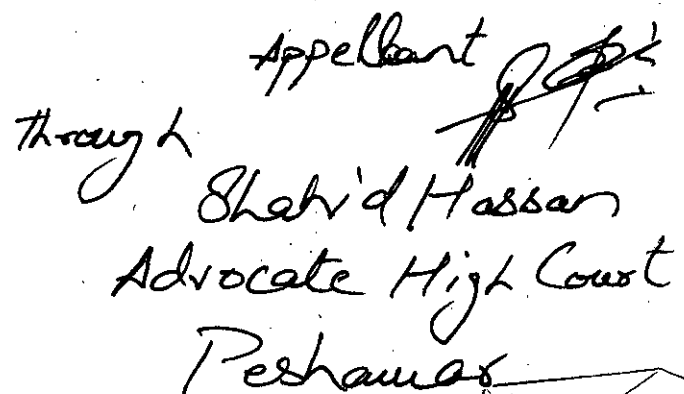 Appellant
through
Shahid Hassan
Advocate High Court
Peshawar